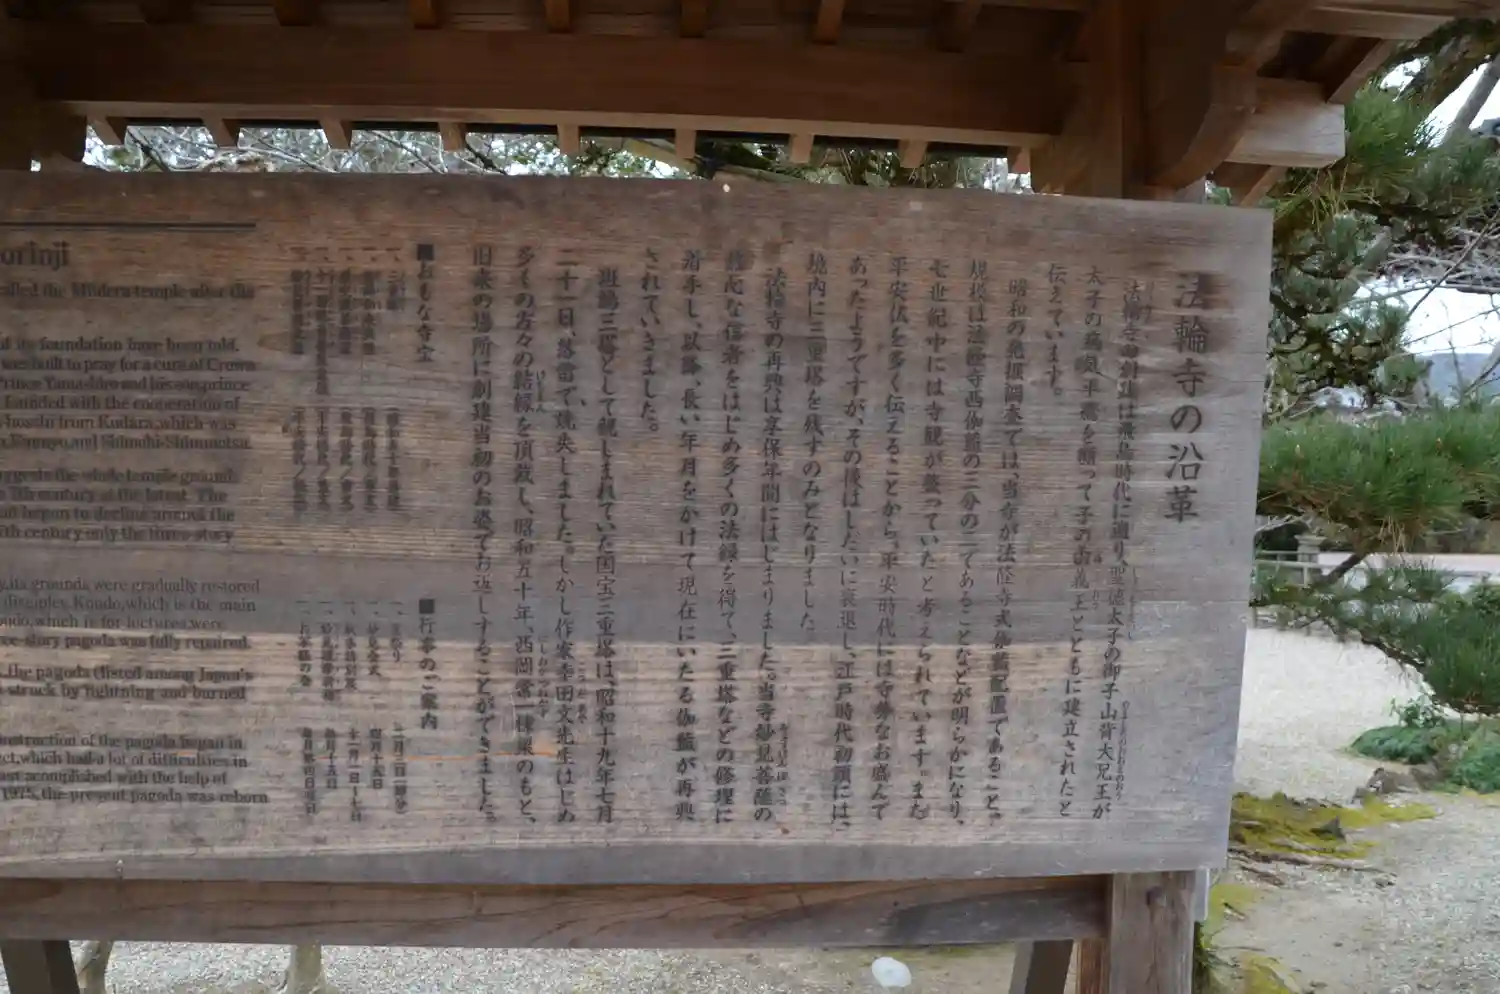 法輪寺の沿革
法輪寺の創建は飛鳥時代に遡り、聖徳太子の御子山背大兄王が
太子の病気平癒を願って子の由義王とともに建立されたと
伝えています。
昭和の発掘調査では、当寺が法隆寺式伽藍配置であること、
規模は法隆寺西伽藍の三分の二であることなどが明らかになり、
七世紀中には寺観が整っていたと考えられています。また
平安仏を多く伝えることから、平安時代には寺勢なお盛んで
あったようですが、その後はしだいに衰退し、江戸時代初頭には、
境内に三重塔を残すのみとなりました。
法輪寺の再興は享保年間にはじまりました。当寺妙見菩薩の
熱心な信者をはじめ多くの法縁を得て、三重塔などの修理に
着手し、以降、長い年月をかけて現在にいたる伽藍が再興
されていきました。
斑鳩三塔として親しまれていた国宝三重塔は、昭和十九年七月
二十一日、落雷で焼失しました。しかし作家幸田文先生はじめ
多くの方々の結縁を頂戴し、昭和五十年、西岡常一棟梁のもと、
旧来の場所に創建当初のお姿でお返しすることができました。
■おもな寺宝
■行事のご案内
一、星祭り 二月三日(節分)
一、妙見会式 四月十五日
一、秋季特別展 十一月一日〜七日
orinji
called the Miidera temple after the
d its foundation have been told.
was built to pray for a cure of Crown
Prince Yamashiro and his son prince
founded with the cooperation of
hoshi from Kudara, which was
7th century at the latest. The
began to decline around the
th century only the three-story
its grounds were gradually restored
disciples. Kondo, which is the main
odo, which is for lectures, were
ree-story pagoda was fully repaired.
the pagoda (listed among Japan's
struck by lightning and burned
nstruction of the pagoda began in
ect, which had a lot of difficulties in
ast acomplished with the help of
1975, the present pagoda was reborn